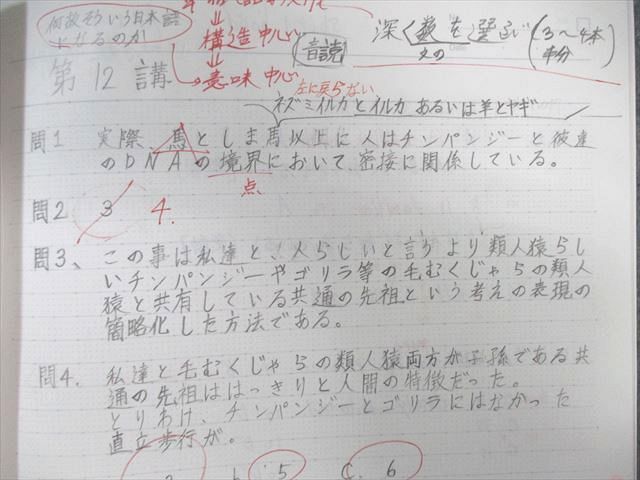 何故そういう日本語
になるのか
構造中心
意味中心
音読
深く数を選ぶ
文の
(3〜4本
半分)
第12講
左に戻らない
ネズミイルカとイルカ あるいは羊とヤギ
問1 実際、馬としま馬以上に人はチンパンジーと彼達
のDNAの境界において、密接に関係している。
点
問2 3 4.
問3、この事は私達と、人らしいと言うより類人猿らし
いチンパンジーやゴリラ等の毛むくじゃらの類人
猿と共有している共通の先祖という考えの表現の
簡略化した方法である。
問4. 私達と毛むくじゃらの類人猿両方が子孫である共
通の先祖ははっきりと人間の特徴だった。
とりわけ、チンパンジーとゴリラにはなかった
直立歩行が。
b. 5 C. 6